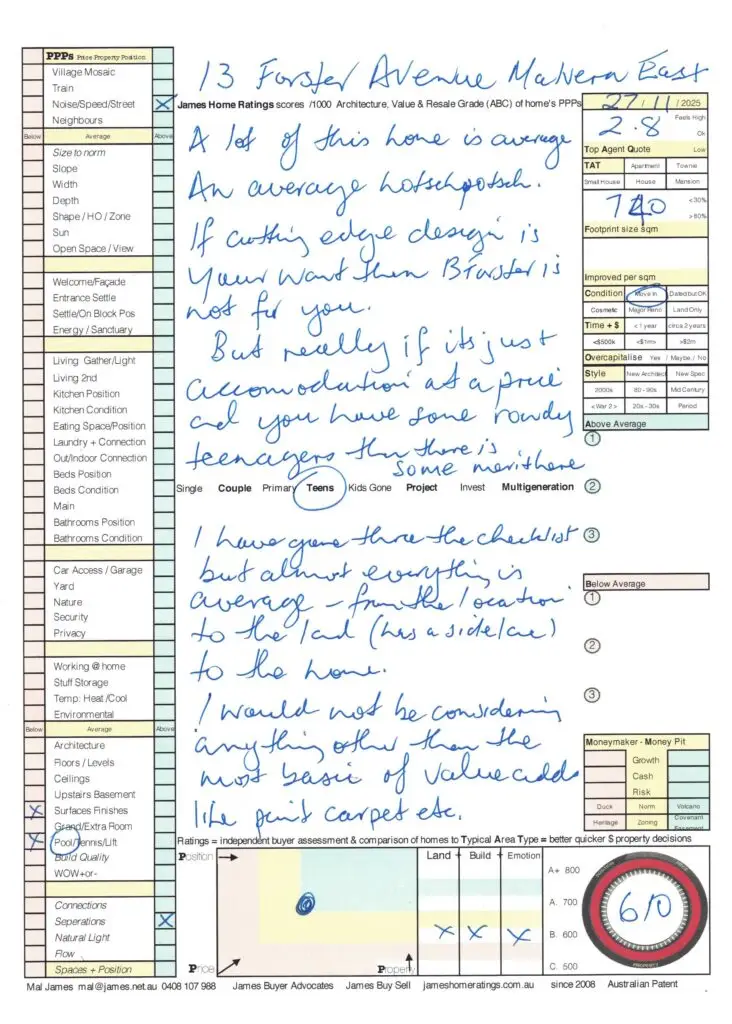 13 Forster Avenue Malvern East
PPPs Price Property Position
Village Mosaic
Train
Noise/Speed/Street
Neighbours
Below Average Above
Size to norm
Slope
Width
Depth
Shape / HO / Zone
Sun
Open Space / View
Welcome/Façade
Entrance Settle
Settle/On Block Pos
Energy / Sanctuary
Living Gather/Light
Living 2nd
Kitchen Position
Kitchen Condition
Eating Space/Position
Laundry + Connection
Out/Indoor Connection
Beds Position
Beds Condition
Main
Bathrooms Position
Bathrooms Condition
Car Access / Garage
Yard
Nature
Security
Privacy
Working @ home
Stuff Storage
Temp: Heat /Cool
Environmental
Below Average Above
Architecture
Floors / Levels
Ceilings
Upstairs Basement
Surfaces Finishes
Grand/Extra Room
Pool/Tennis/Lift
Build Quality
WOW+or-
Connections
Seperations
Natural Light
Flow
Spaces + Position
James Home Ratings scores /1000 Architecture, Value & Resale Grade (ABC) of home's PPPs
A lot of this home is average
An average hotschpotsch.
If cutting edge design is
your want then 13 Forster is
not for you.
But really if its just
accomodation at a price
and you have some rowdy
teenagers then there is
some merit here
Single Couple Primary Teens Kids Gone Project Invest Multigeneration
I have gone throu the checklist
but almost everything is
average – from the location
to the land (has a side lane)
to the home.
I would not be considering
anything other than the
most basic of value adds
like paint carpet etc.
27/11/2025
2.8 Feels High
Ok
Top Agent Quote Low
TAT Apartment Townie
Small House House Mansion
740 <30%
>60%
Footprint size sqm
Improved per sqm
Condition Move In Dated but OK
Cosmetic Major Reno Land Only
Time + $ < 1 year circa 2 years
<$500k <$1m> >$2m
Overcapitalise Yes / Maybe / No
Style New Architect New Spec
2000s 80 - 90s Mid Century
< War 2 > 20s - 30s Period
Above Average
1
2
3
Below Average
1
2
3
Moneymaker - Money Pit
Growth
Cash
Risk
Duck Norm Volcano
Heritage Zoning Covenant
Easement
Ratings = independent buyer assessment & comparison of homes to Typical Area Type = better quicker $ property decisions
Position
Price
Property
Land + Build + Emotion
A+ 800
A. 700
B. 600
C. 500
610
PROPERTY
Mal James mal@james.net.au 0408 107 988 James Buyer Advocates James Buy Sell jameshomeratings.com.au since 2008 Australian Patent